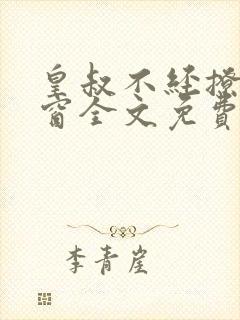 皇叔不经撩
窗全文免费
李青崖